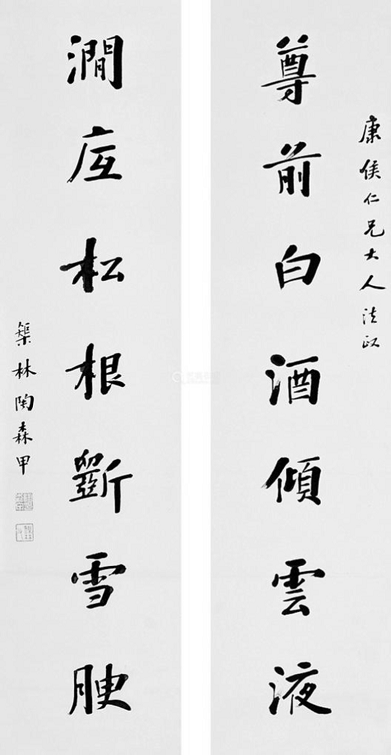 康侯仁兄大人法政
尊前白酒傾雲液
澗底松根斲雪腴
榘林陶森甲